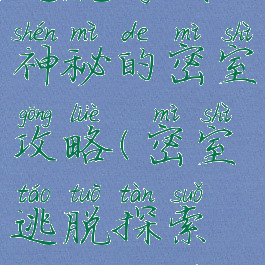 shén mì de mì shì
神秘的密室
gōng lüè mì shì
攻略(密室
táo tuō tàn suǒ
逃脱探索